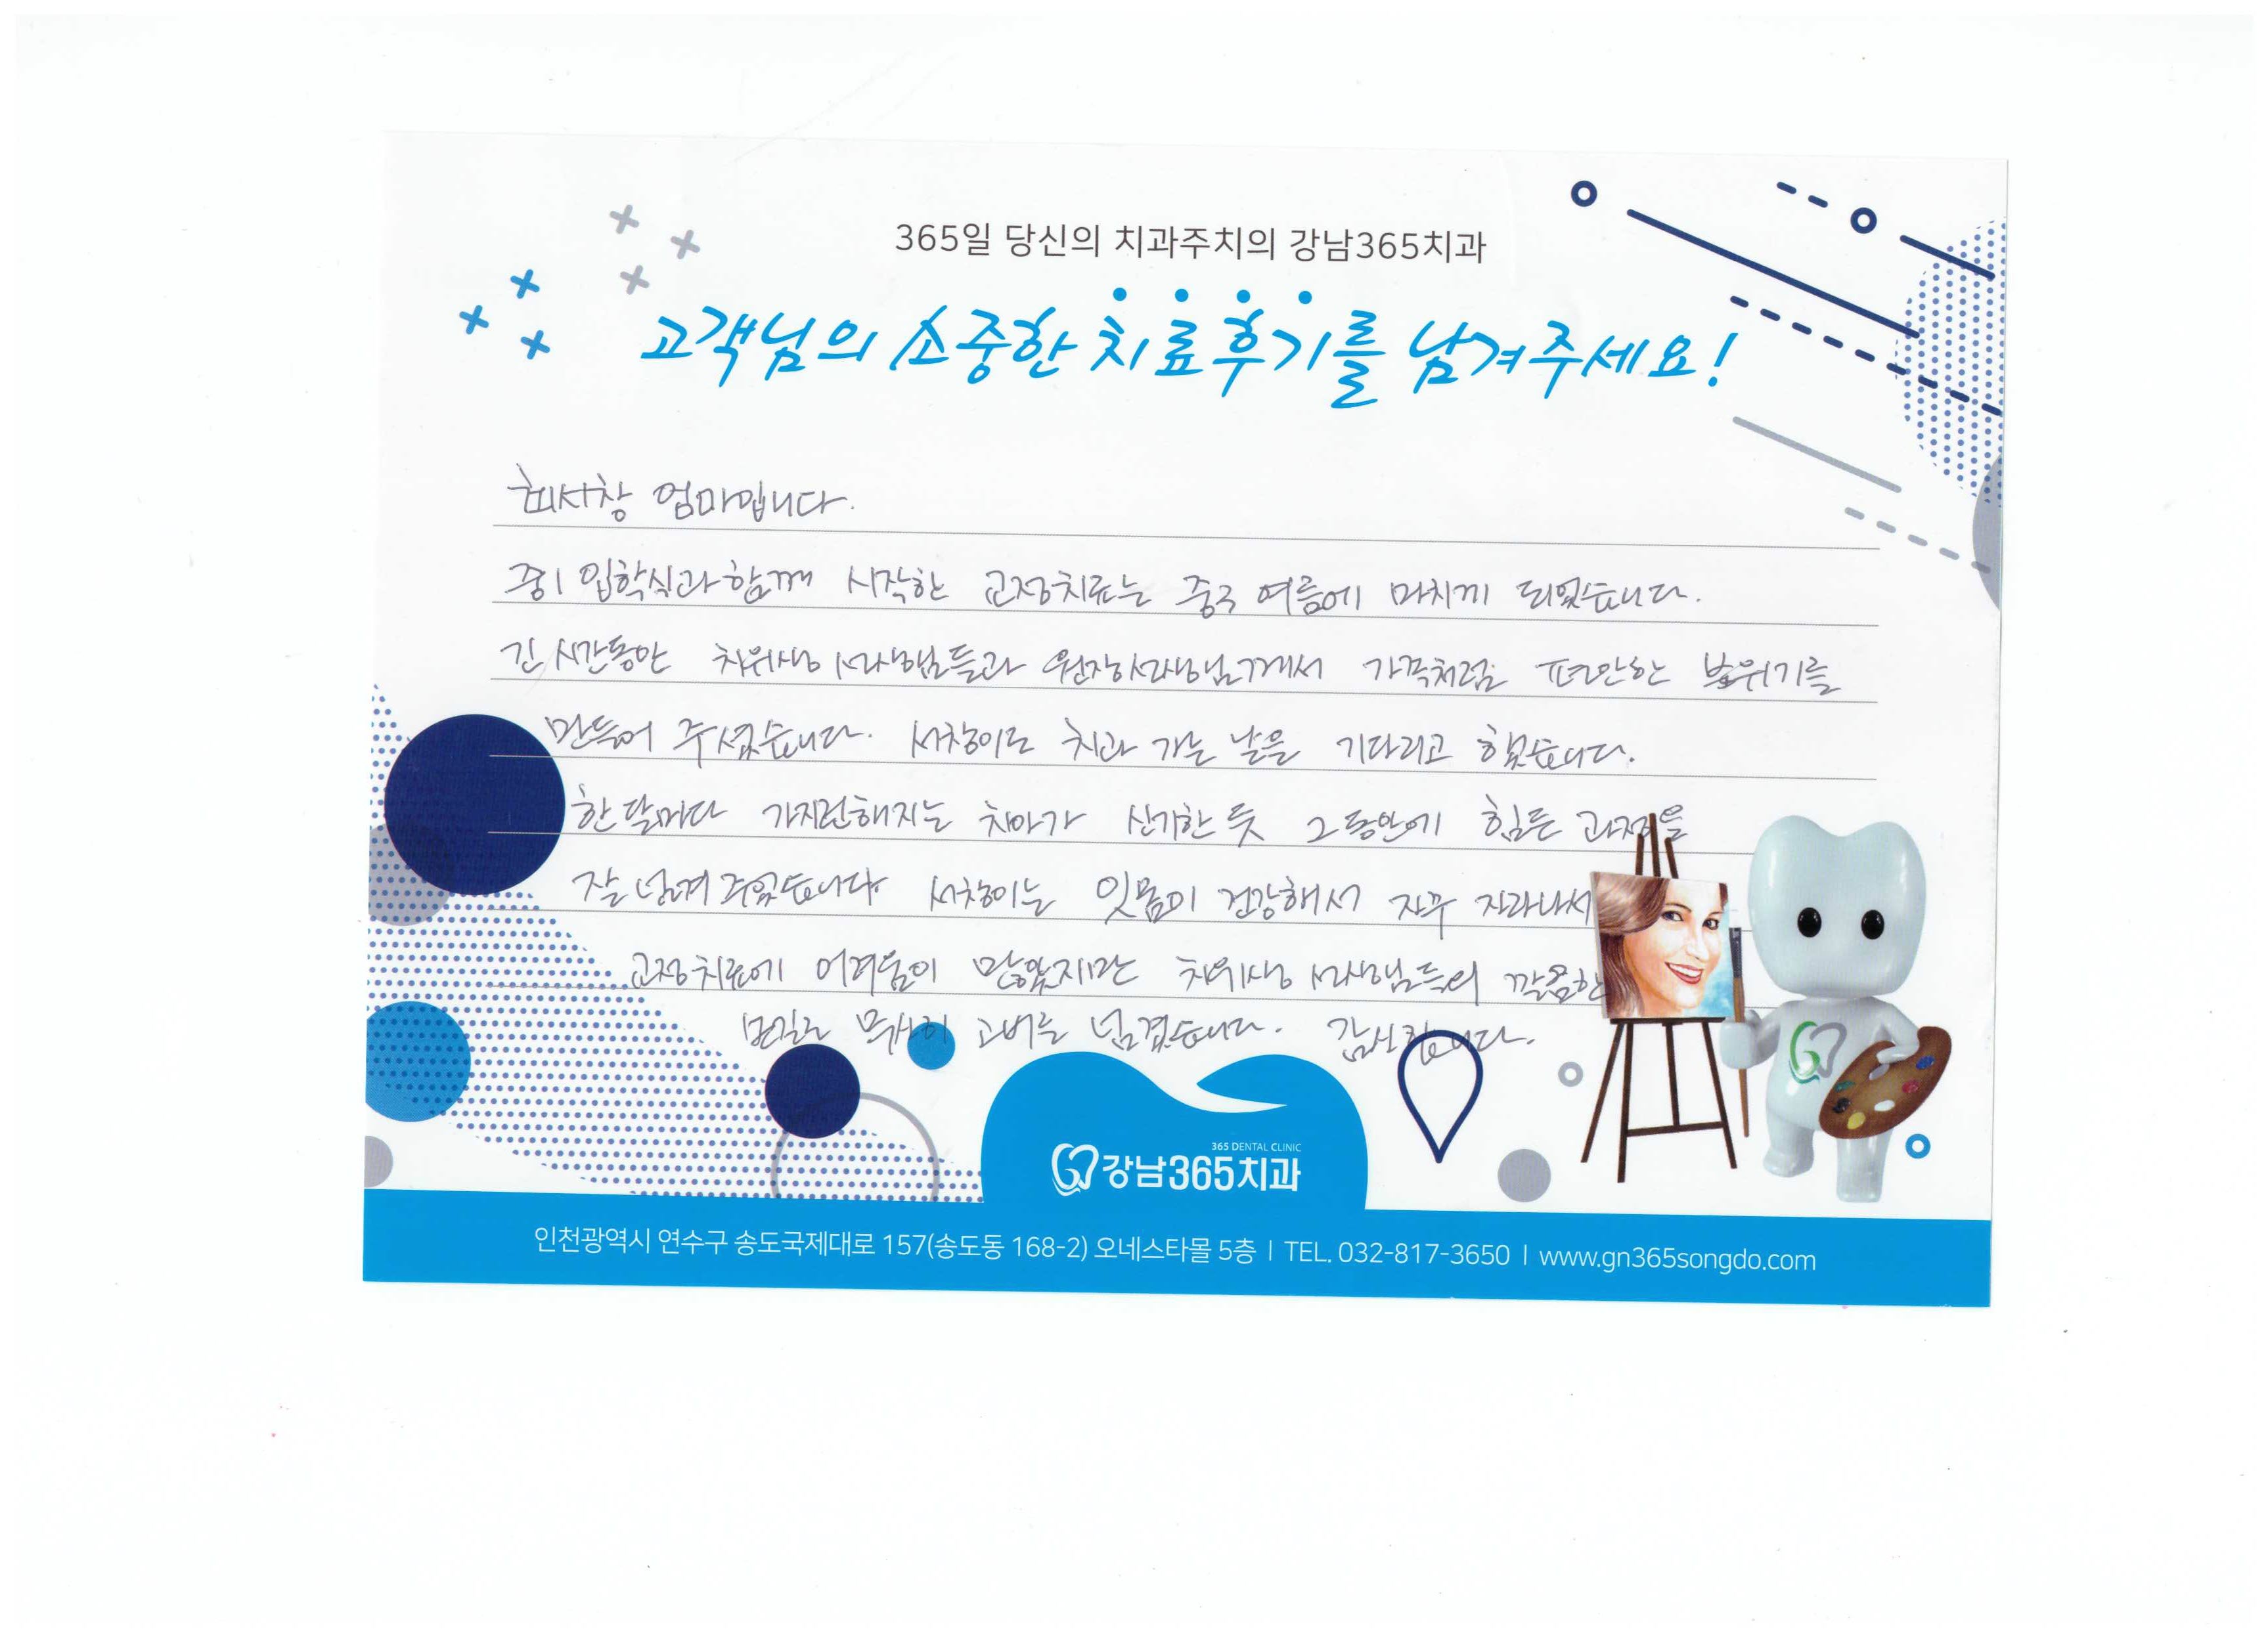 365일 당신의 치과주치의 강남365치과
고객님의 소중한 치료후기를 남겨주세요!
엄마입니다.
중1 입학식과 함께 시작한 교정치료는 중3 여름에 마치게 되었습니다.
긴 시간동안 치위생 선생님들과 원장선생님께서 가족처럼 편안한 분위기를
만들어 주셨습니다. 서창이도 치과 가는 날을 기다리고 했습니다.
한 달마다 가지런해지는 치아가 신기한 듯 그 동안에 힘든 과정을
잘 넘겨 주었습니다 서창이는 잇몸이 건강해서 자꾸 자라나서
교정치료에 어려움이 많았지만 치위생 선생님들의 깔끔한
무사히 고비를 넘겼습니다. 감사합니다.
365 DENTAL CLINIC
강남365치과
인천광역시 연수구 송도국제대로 157(송도동 168-2) 오네스타몰 5층 | TEL. 032-817-3650 | www.gn365songdo.com